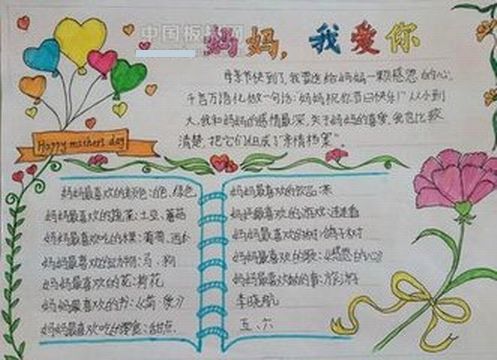 中国板报网
妈妈,我爱你
Happy mothers day
母亲节快到了,我要送给妈妈一颗感恩的心,
千言万语化做一句话:"妈妈祝你节日快乐!"从小到
大,我和妈妈的感情最深,关于妈妈的喜爱,我也比较
清楚,把它们组成了"亲情档案"
妈妈最喜欢的颜色:白色,绿色
妈妈最喜欢的蔬菜:土豆,蘑菇
妈妈最喜欢吃的水果:葡萄,
妈妈最喜欢的动物:马,狗
妈妈最喜欢的花:梅花
妈妈最喜欢的书:《简·爱》
妈妈最喜欢吃的零食:甜点
妈妈最喜欢的饮品:茶
妈妈最喜欢的游戏:连连看
妈妈最喜欢的树:
妈妈最喜欢的歌:《感恩的心》
妈妈最喜欢的
李晓航
五、六